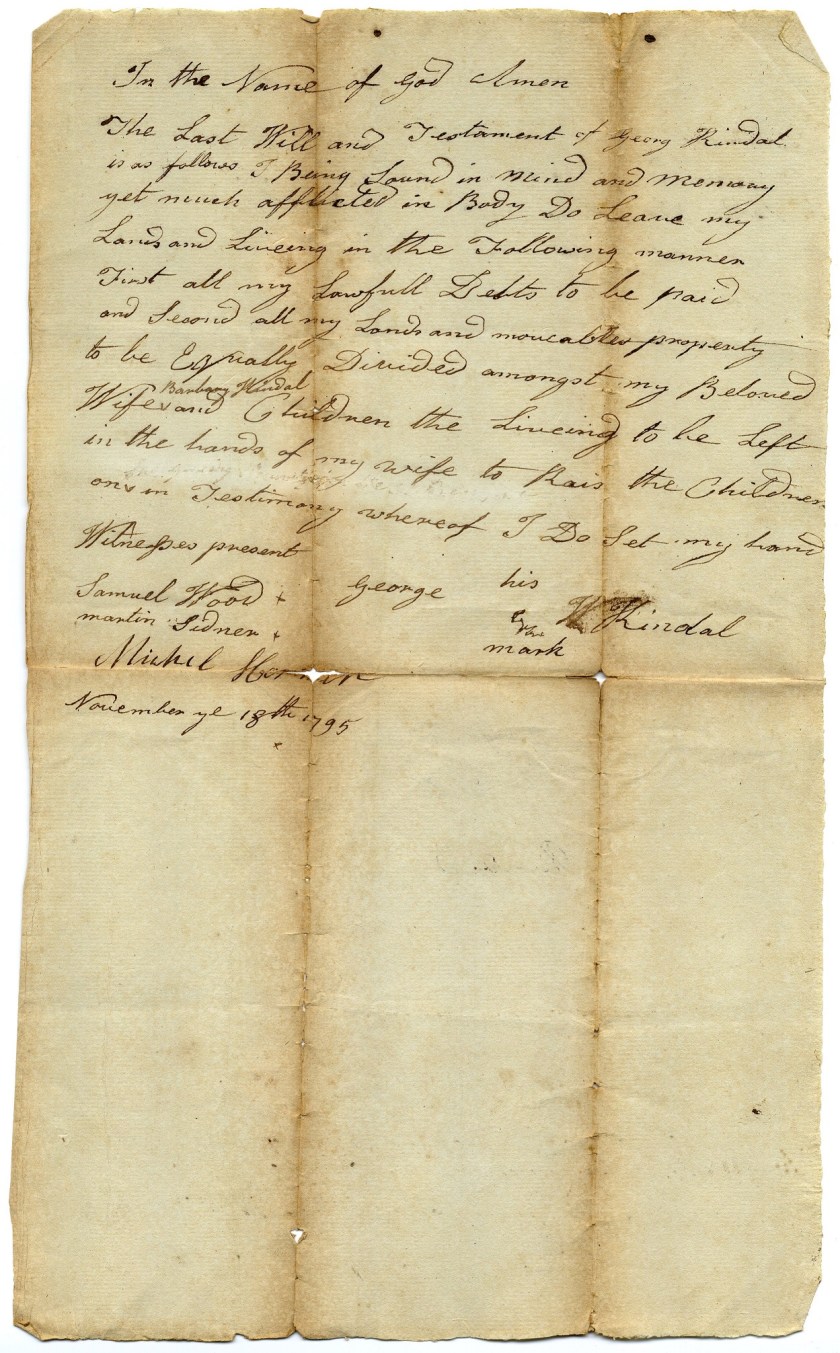 In the Name of God Amen
The Last Will and Testament of Georg Kindal
is as follows I Being Sound in mind and memory
yet much afflicted in Body Do Leave my
Lands and Liveing in the Following manner
First all my Lawfull Debts to be paid
and Second all my Lands and moveables property
to be Equally Divided amongst my Beloved
Barbary Kindal
Wife and Children the Liveing to be Left
in the hands of my wife to Rais the Children
on in Testimony whereof I Do Set my hand
Witnesses present
Samuel Wood George his W Kindal
martin Sidner mark
Michel
November ye 18th 1795